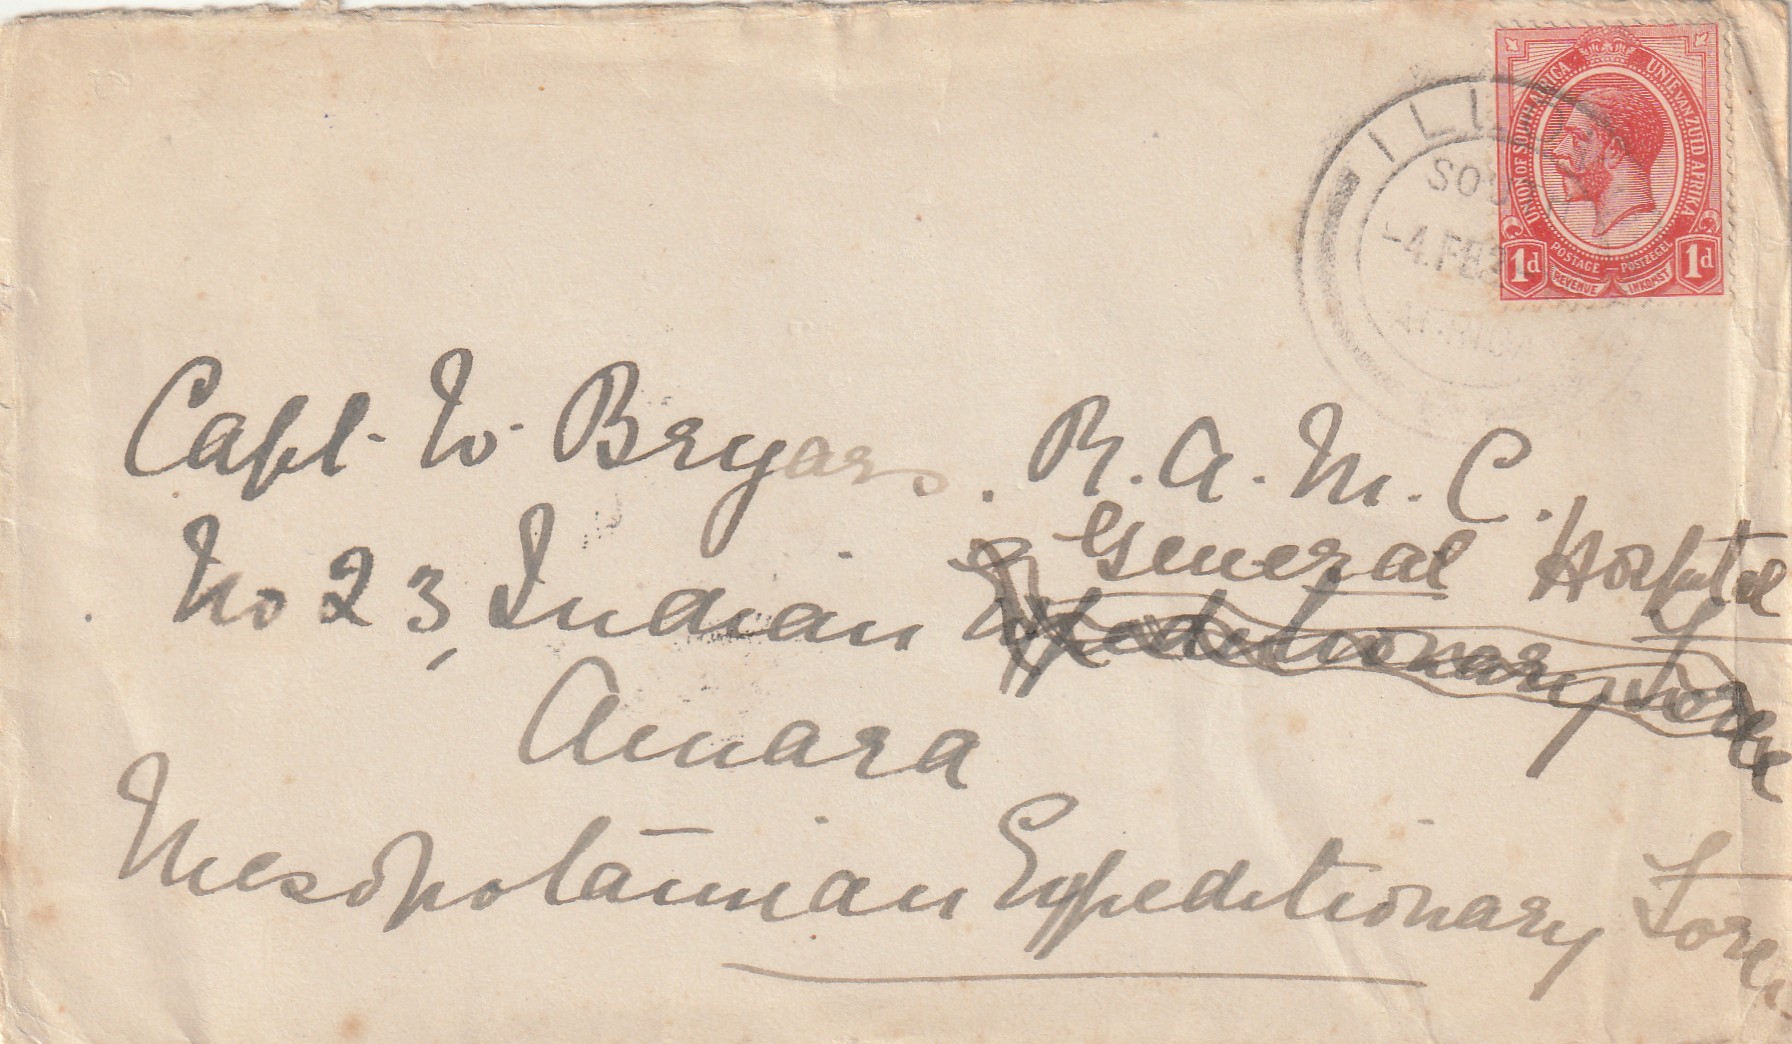 UNION OF SOUTH AFRICA UNIE VAN ZUID AFRIKA
POSTAGE POSTZEGEL
REVENUE INKOMST
1d 1d
SOUTH
-4.FEB
AFRICA
Capt. W. Bryars. R.A.M.C.
General Hospital
No 23, Indian Expeditionary Force
Amara
Mesopotamian Expeditionary Force